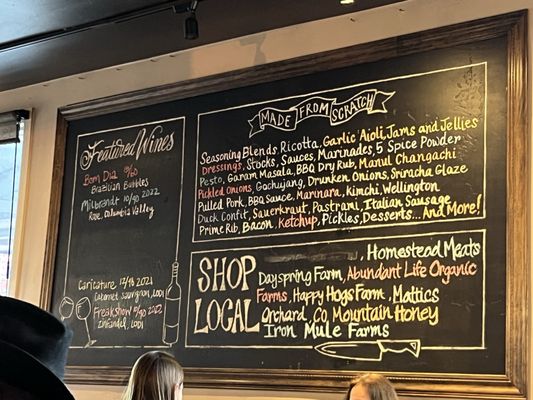 Featured Wines
Bom Dia 8/60
Brazilian Bubbles
Milbrandt 10/90 2022
Rose, Columbia Valley
Caricature 12/18 2021
Cabernet Sauvignon, LODI
Freakshow 15/90 2022
Zinfandel, LODI
MADE FROM SCRATCH
Seasoning Blends, Ricotta, Garlic Aioli, Jams and Jellies
Dressings, Stocks, Sauces, Marinades, 5 Spice Powder
Pesto, Garam Masala, BBQ Dry Rub, Manul Changachi
Pickled Onions, Gochujang, Drunken Onions, Sriracha Glaze
Pulled Pork, BBQ Sauce, Marinara, Kimchi, Wellington
Duck Confit, Sauerkraut, Pastrami, Italian Sausage
Prime Rib, Bacon, Ketchup, Pickles, Desserts... And More!
SHOP LOCAL
, Homestead Meats
Dayspring Farm, Abundant Life Organic
Farms, Happy Hogs Farm, Mattics
Orchard, Co, Mountain Honey
Iron Mule Farms